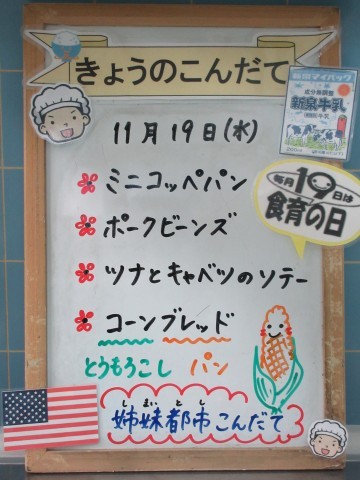 きょうのこんだて
11月19日(水)
新泉マイパック
成分無調整
新泉牛乳
ミニコッペパン
毎月19日は
食育の日
ポークビーンズ
ツナとキャベツのソテー
コーンブレッド
とうもろこし パン
しまいとし
姉妹都市こんだて